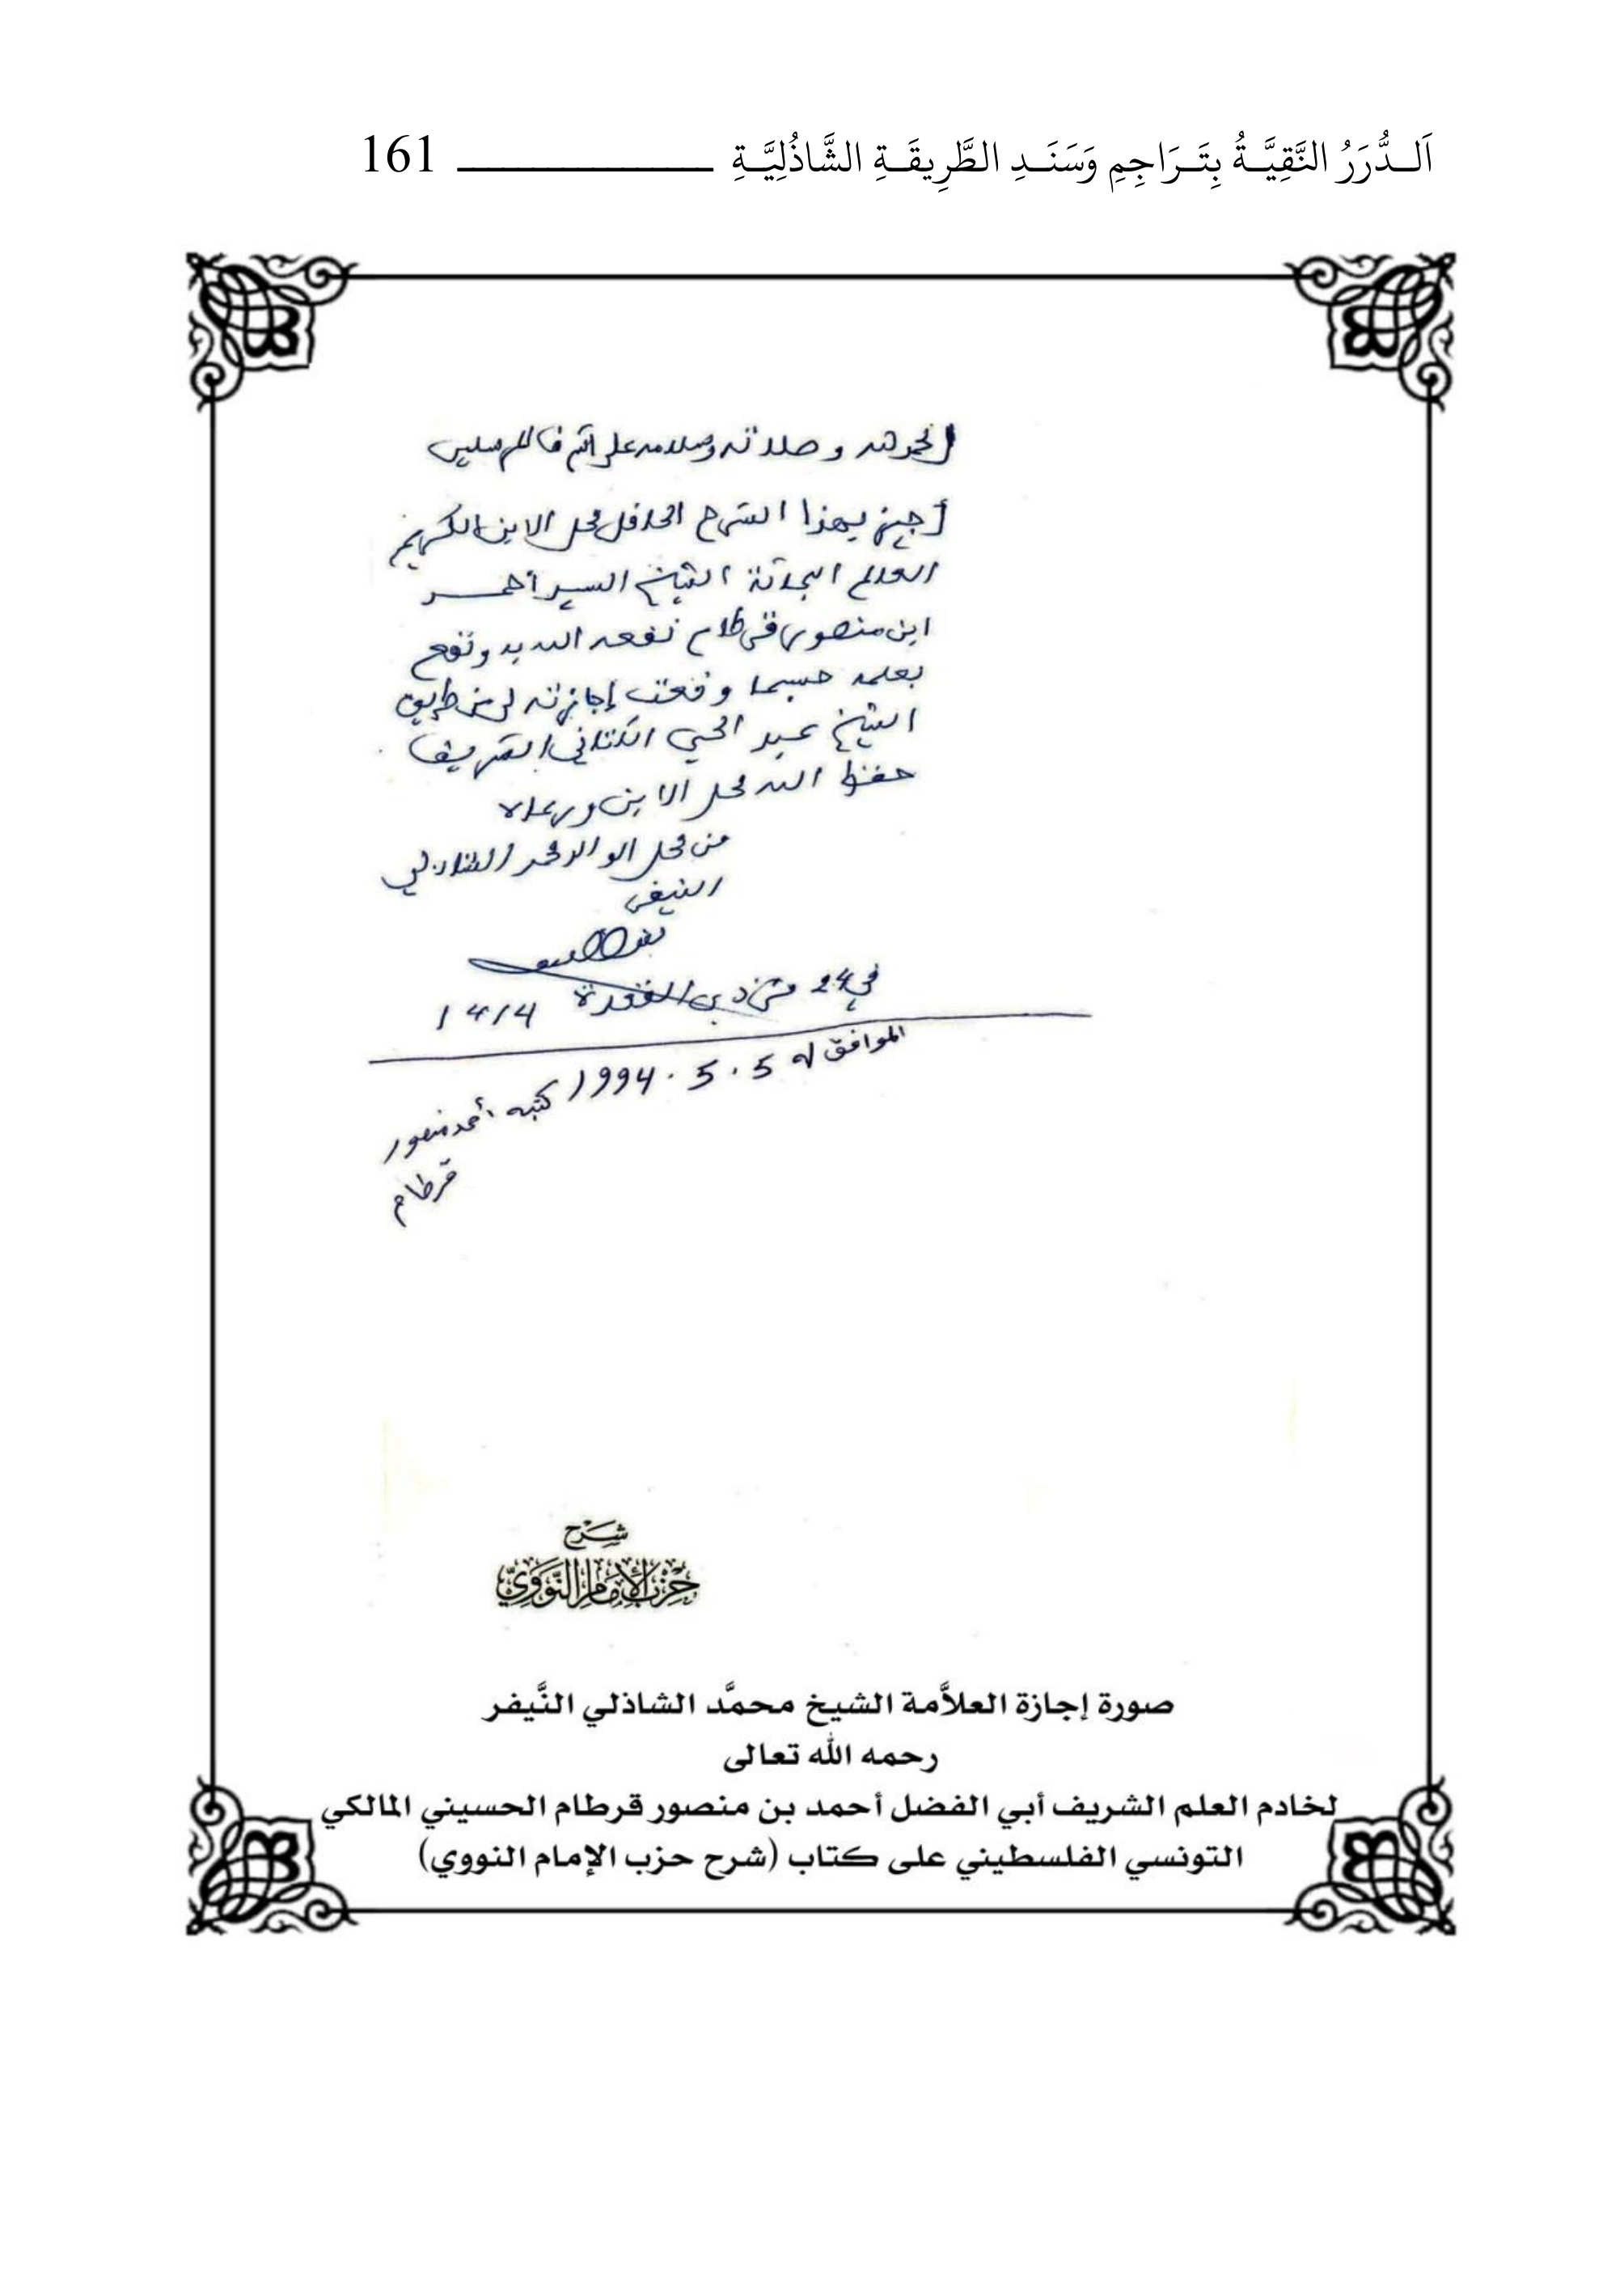 اَلــدُّرَرُ النَّقِيَّــةُ بِتَــرَاجِمِ وَسَنَــدِ الطَّرِيقَــةِ الشَّاذُلِيَّــةِ ــــــــــــــــــ 161
الحمد لله وصلاته وسلامه على أشرف المرسلين
أجيز بهذا الشرح الحافل محل الابن الكريم
العالم البحاثة الشيخ السيد أحمد
ابن منصور قرطام نفعه الله به ونفع
بعلمه حسبما وقعت إجازته لي من طريق
الشيخ عبد الحي الكتاني الشريف
حفظ الله محل الابن ورعاه
من محل الوالد محمد الشاذلي
النيفر
في 24 من ذي القعدة 1414
الموافق له 5 . 5 . 1994 كتبه أحمد منصور
قرطام
شَرْح
حِزْبُ الإِمَامِ النَّوَوِيّ
صورة إجازة العلاَّمة الشيخ محمَّد الشاذلي النَّيفر
رحمه الله تعالى
لخادم العلم الشريف أبي الفضل أحمد بن منصور قرطام الحسيني المالكي
التونسي الفلسطيني على كتاب (شرح حزب الإمام النووي)